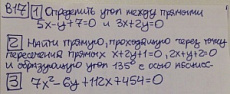 В17 1 Определить угол между прямыми
5x-y+7=0 и 3x+2y=0
2 Найти прямую, проходящую через точку
пересечения прямых x+2y+1=0, 2x+y+2=0
и образующую угол 135° с осью абсцисс
3 7x²-6y+112x+454=0